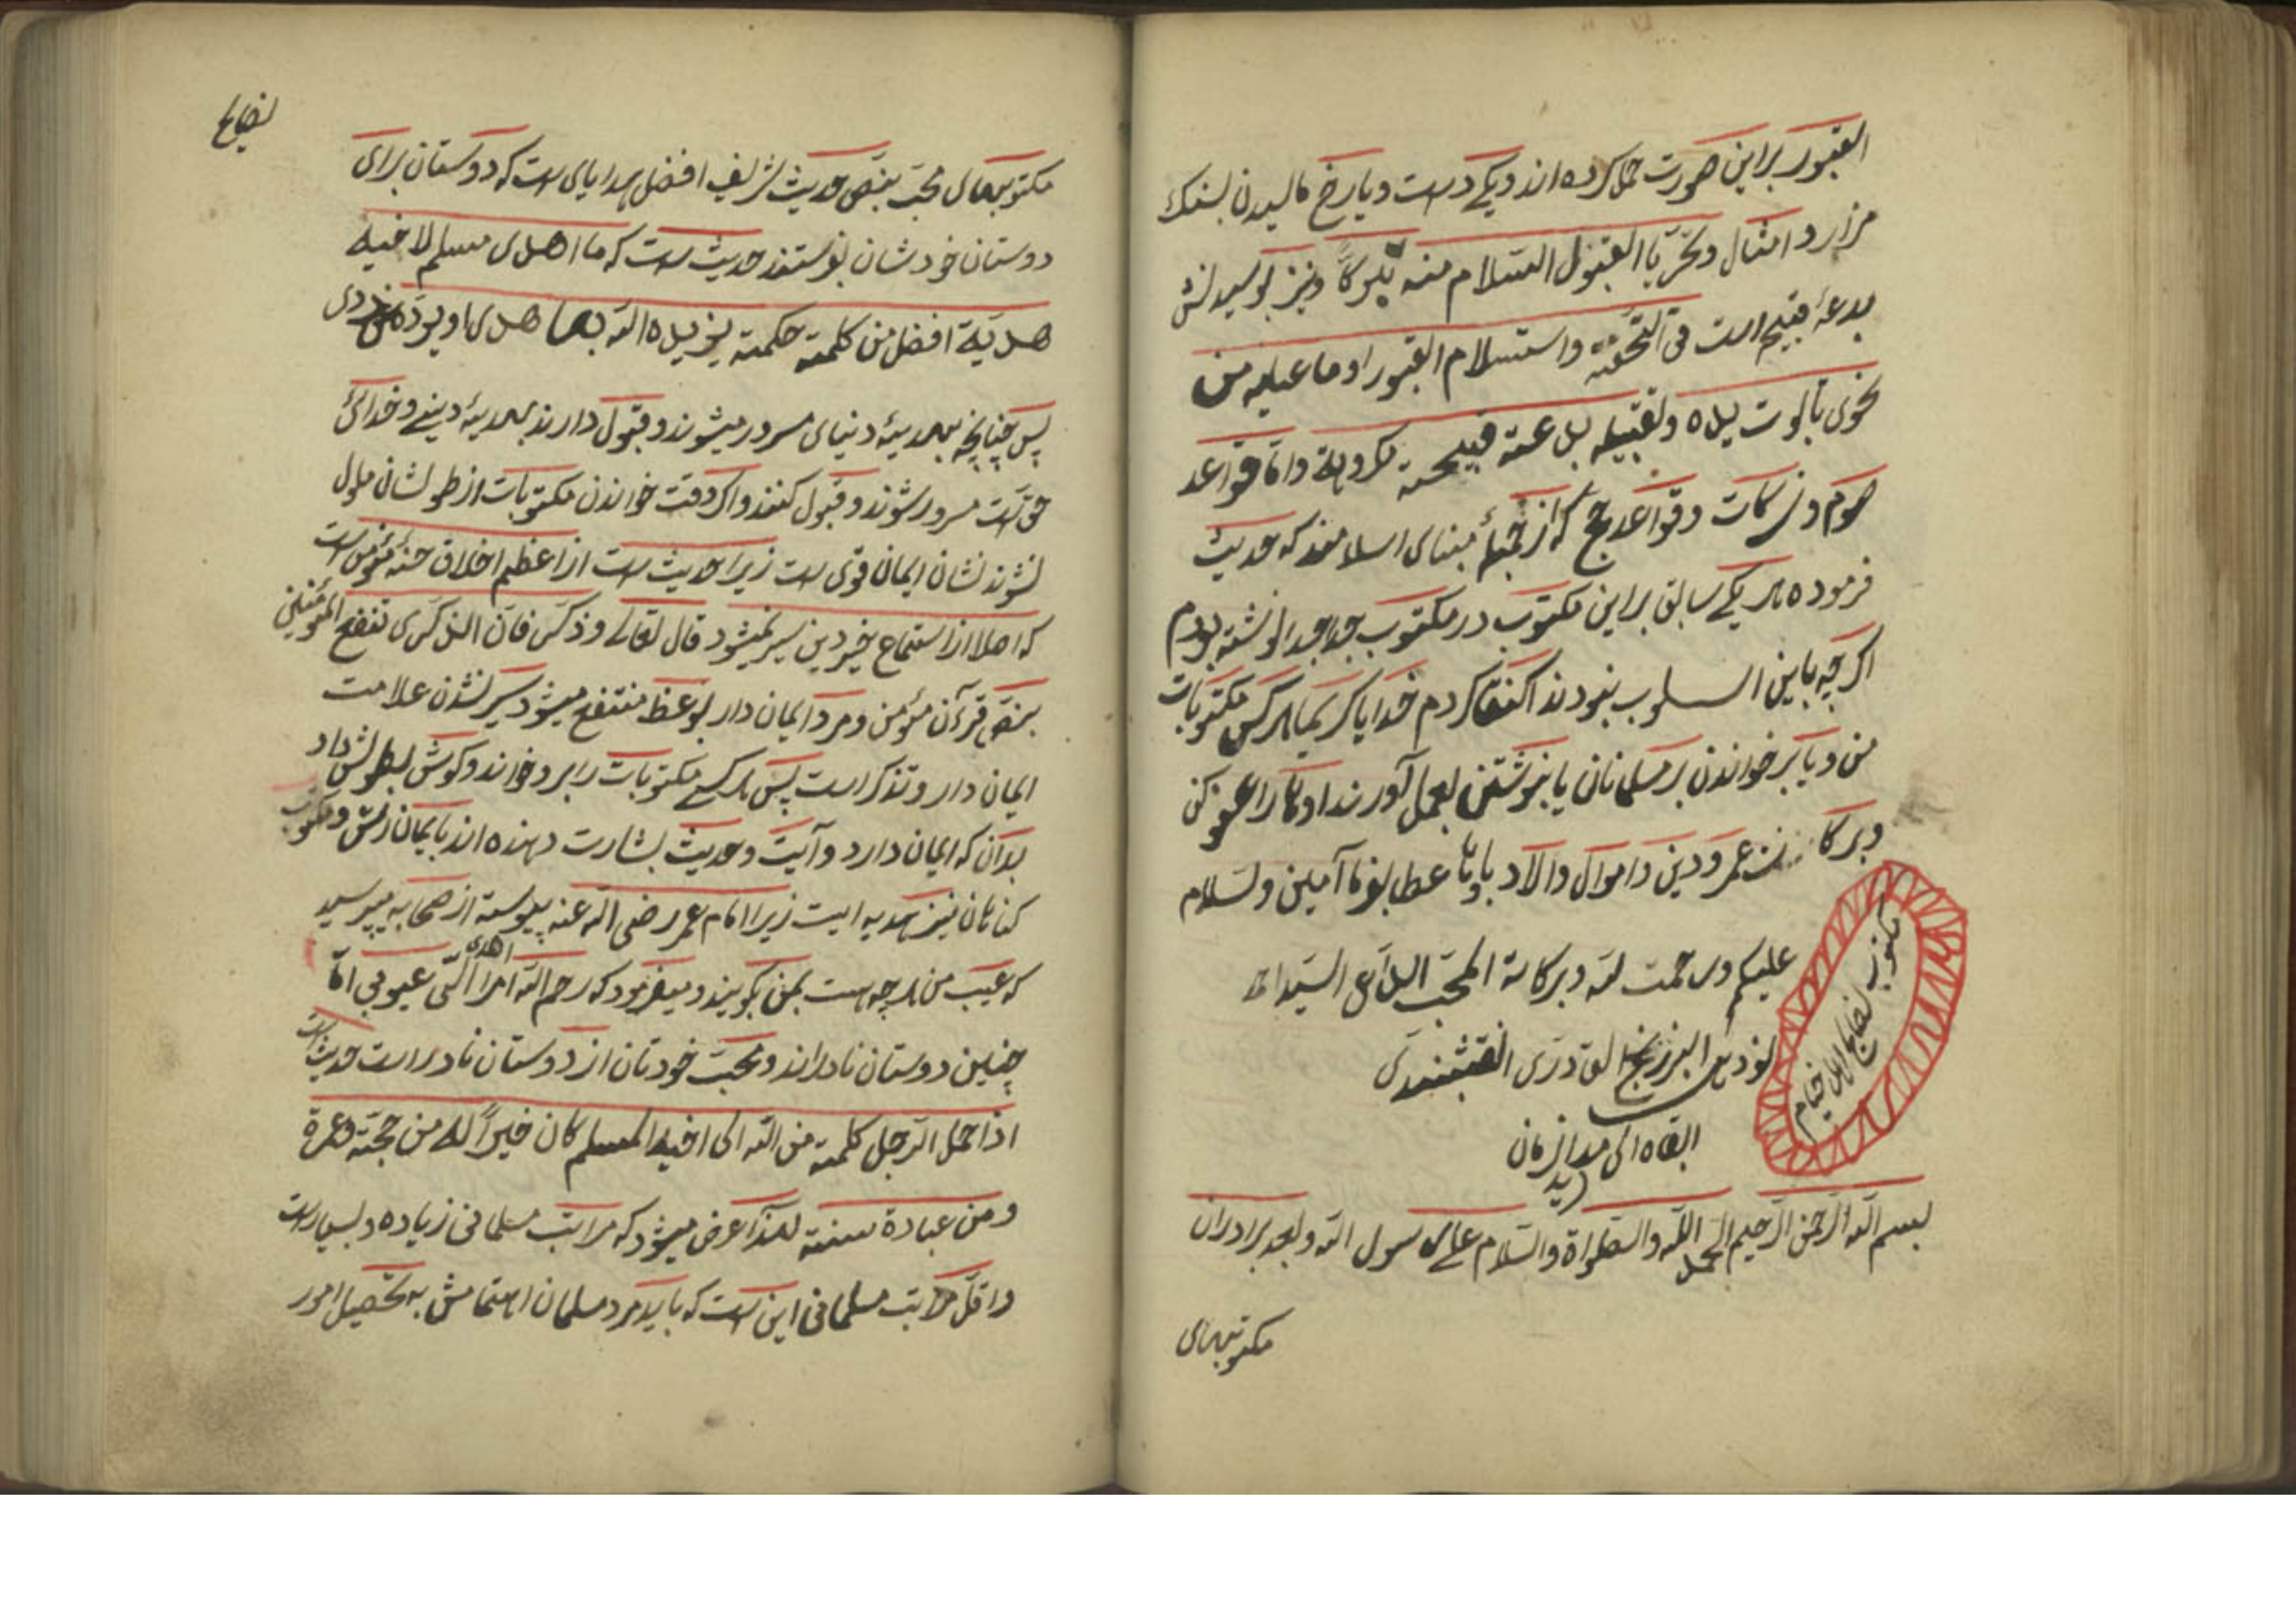 القبور براین صورت حمل کرده‌اند و یکے دست و یا رخ مالیدن بسنک
مزار و امثال و تحرّیا القبول السّلام منه تبرکاً و نیز بوسیدنش
بدعۀ قبیح است فی التّحفه واستسلام القبور او ما عبلیه من
نحوی تابوت بیده وتقبیله بدعته قبیحته مکروهة و امّا قواعد
صوم و زکات و قواعد حج که از جملۀ بنای اسلامند که حدیث
فرموده هر یکے سابق براین مکتوب در مکتوب جدا جدا نوشته بودم
اکر چه باین اسلوب نبودند اکتفا کردم خدایا کریما هر کس مکتوبات
من و یا بر خواندن بر مسلمانان یا بنوشتن بعمل آورند او را عفو کن
وبرکات عمر و دین و اموال و الاد باو عطا بفرما آمین ولسلام
علیکم ورحمت لله وبرکاته المحبّ الدّاعی السّید احمد
البرزنجی القادری النقشبندی
ابقاه الی مد الزمان
مکتوب نصایح اهل خیام
بسم الله الرّحمن الرّحیم الحمد لله والصّلواة والسّلام علی رسول الله وبعد برادران
مکتوبهای
نصایح
مکتوبهای محبّ بنصّ حدیث شریف افضل هدایای است که دوستان برای
دوستان خودشان بفرستند حدیث است که ما اهدی مسلم لاخیه
هدیّة افضل من کلمته حکمته یزیده الله بها هدی او یردّه عن ردی
پس چنانچه بهدیۀ دنیای مسرور میشوند و قبول دارند بهدیۀ دینے و خدائی
حق است مسرور شوند و قبول کنند و اکر وقت خواندن مکتوبات از طولشان ملول
نشوند نشان ایمان قوی است زیرا حدیث است از اعظم اخلاق حسنۀ مؤمن است
که اصلا از استماع خیر دین سیر نمیشود قال تعالی وذکّر فانّ الذکری تنفع المؤمنین
بنصّ قرآن مؤمن و مرد ایمان دار بوعظ منتفع میشود سیر نشدن علامت
ایمان دار و تذکر است پس هر کسے مکتوبات را بر او خواند و کوش بطولش داد
بدان که ایمان دارد و آیت و حدیث بشارت دهنده‌اند بایمانش و مکتوب
کناهان نیز هدیه ایست زیرا امام عمر رضی الله عنه پیوسته از صحابه میپرسید
که عیب من هر چه هست بمن بکویند و میفرمود که رحم الله امرأ اهدی الیّ عیوبی امّا
چنین دوستان نادراند و محبّت خودتان از دوستان نادر است حدیث است
اذا حمل الرّجل کلمته من الله الی اخیه المسلم کان خیراً له من حجّته وعمرة
ومن عبادة سنته لهذا عرض میشود که مراتب مسلمانی زیاده و بسیار است
و اقلّ مراتب مسلمانی این است که باید مرد مسلمان اهتمامش به تحصیل امور